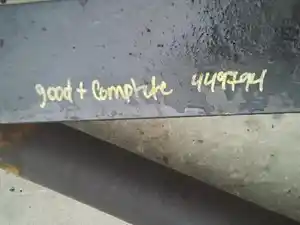 good + Complete 449794